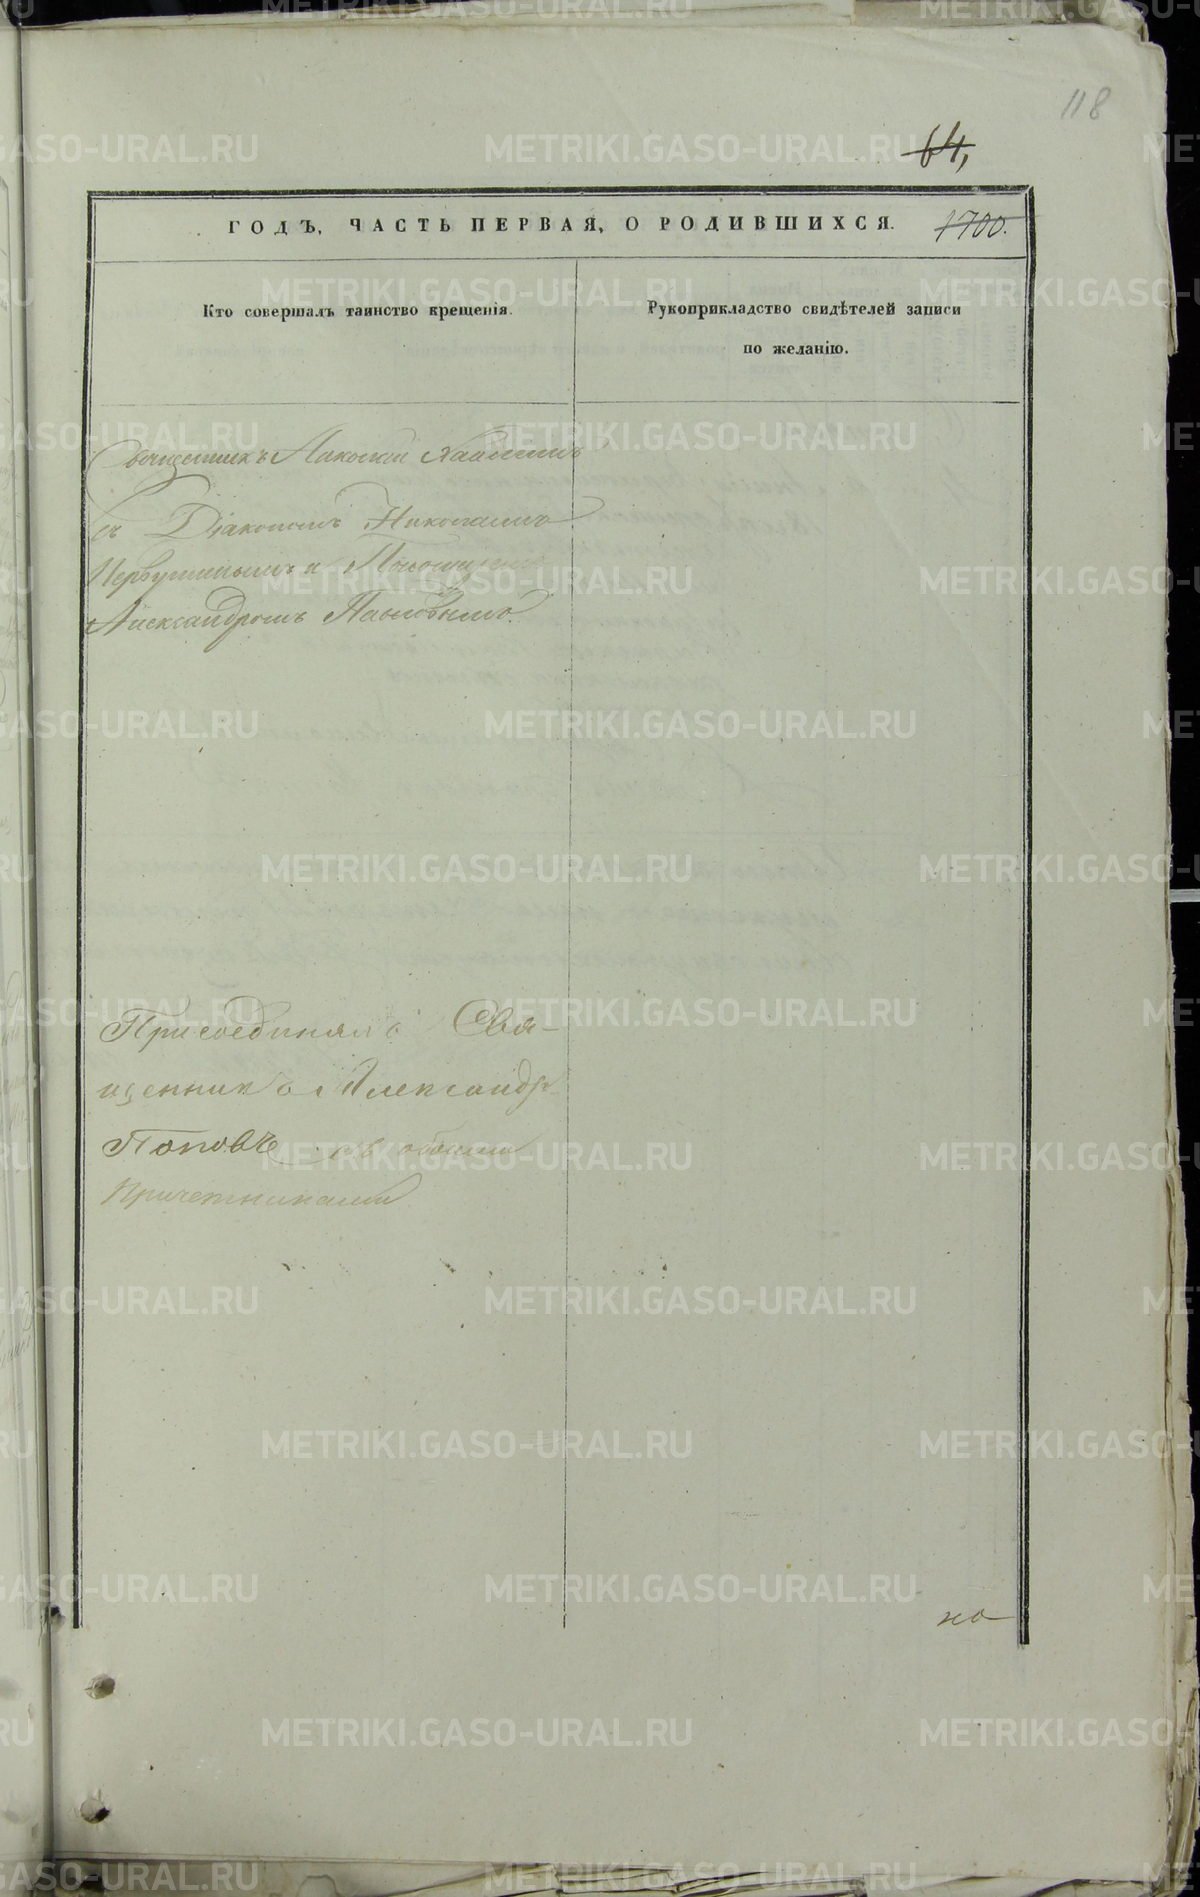 118
64,
ГОДЪ, ЧАСТЬ ПЕРВАЯ, О РОДИВШИХСЯ. 1700.
Кто совершалъ таинство крещенія.
Рукоприкладство свидѣтелей записи
по желанію.
Священникъ
съ Діакономъ Николаемъ
Первушинымъ и
Александромъ Павловымъ.
Присоединялъ Свя-
щенникъ Александръ
Поповъ съ обоими
Причетниками
METRIKI.GASO-URAL.RU